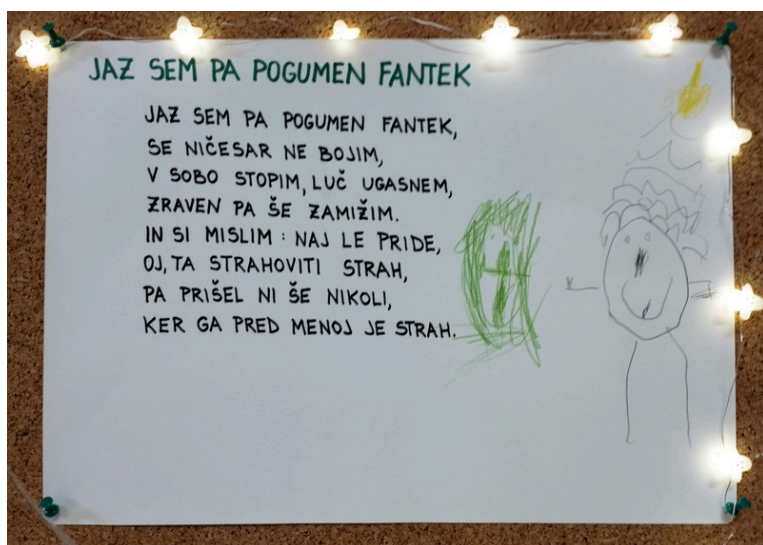 JAZ SEM PA POGUMEN FANTEK
JAZ SEM PA POGUMEN FANTEK,
SE NIČESAR NE BOJIM,
V SOBO STOPIM, LUČ UGASNEM,
ZRAVEN PA ŠE ZAMIŽIM.
IN SI MISLIM : NAJ LE PRIDE,
OJ, TA STRAHOVITI STRAH,
PA PRIŠEL NI ŠE NIKOLI,
KER GA PRED MENOJ JE STRAH.